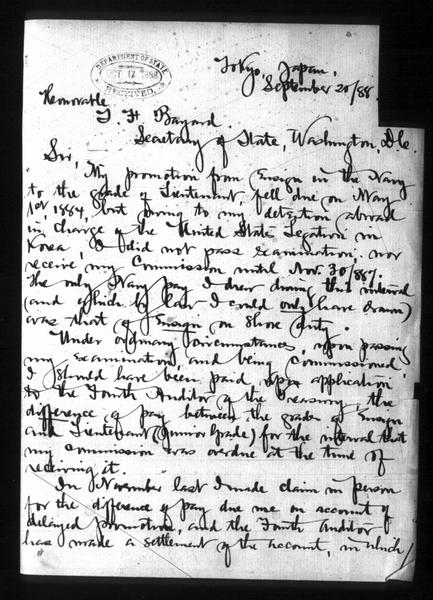 DEPARTMENT OF STATE
OCT 12 1888
RECEIVED.
Tokyo, Japan,
September 20/88.
Honorable
T. F. Bayard.
Secretary of State, Washington, D.C.
Sir,
My promotion from Ensign in the Navy
to the grade of Lieutenant, fell due on May
1st 1884, but owing to my detention abroad
in charge of the United States Legation in
Korea, I did not pass examination, nor
receive my Commission until Nov. 30/887.
The only Navy pay I drew during this interval
(and which by law I could only have drawn)
was that of Ensign on Shore duty.
Under ordinary circumstances, upon passing
my examination, and being Commissioned,
I should have been paid, upon application
to the Fourth Auditor of the Treasury, the
difference of pay between the grades of Ensign
and Lieutenant (Junior Grade) for the interval that
my Commission was overdue at the time of
receiving it.
In November last I made claim in person
for the difference of pay due me on account of
delayed promotion, and the Fourth Auditor
has made a settlement of the account, in which